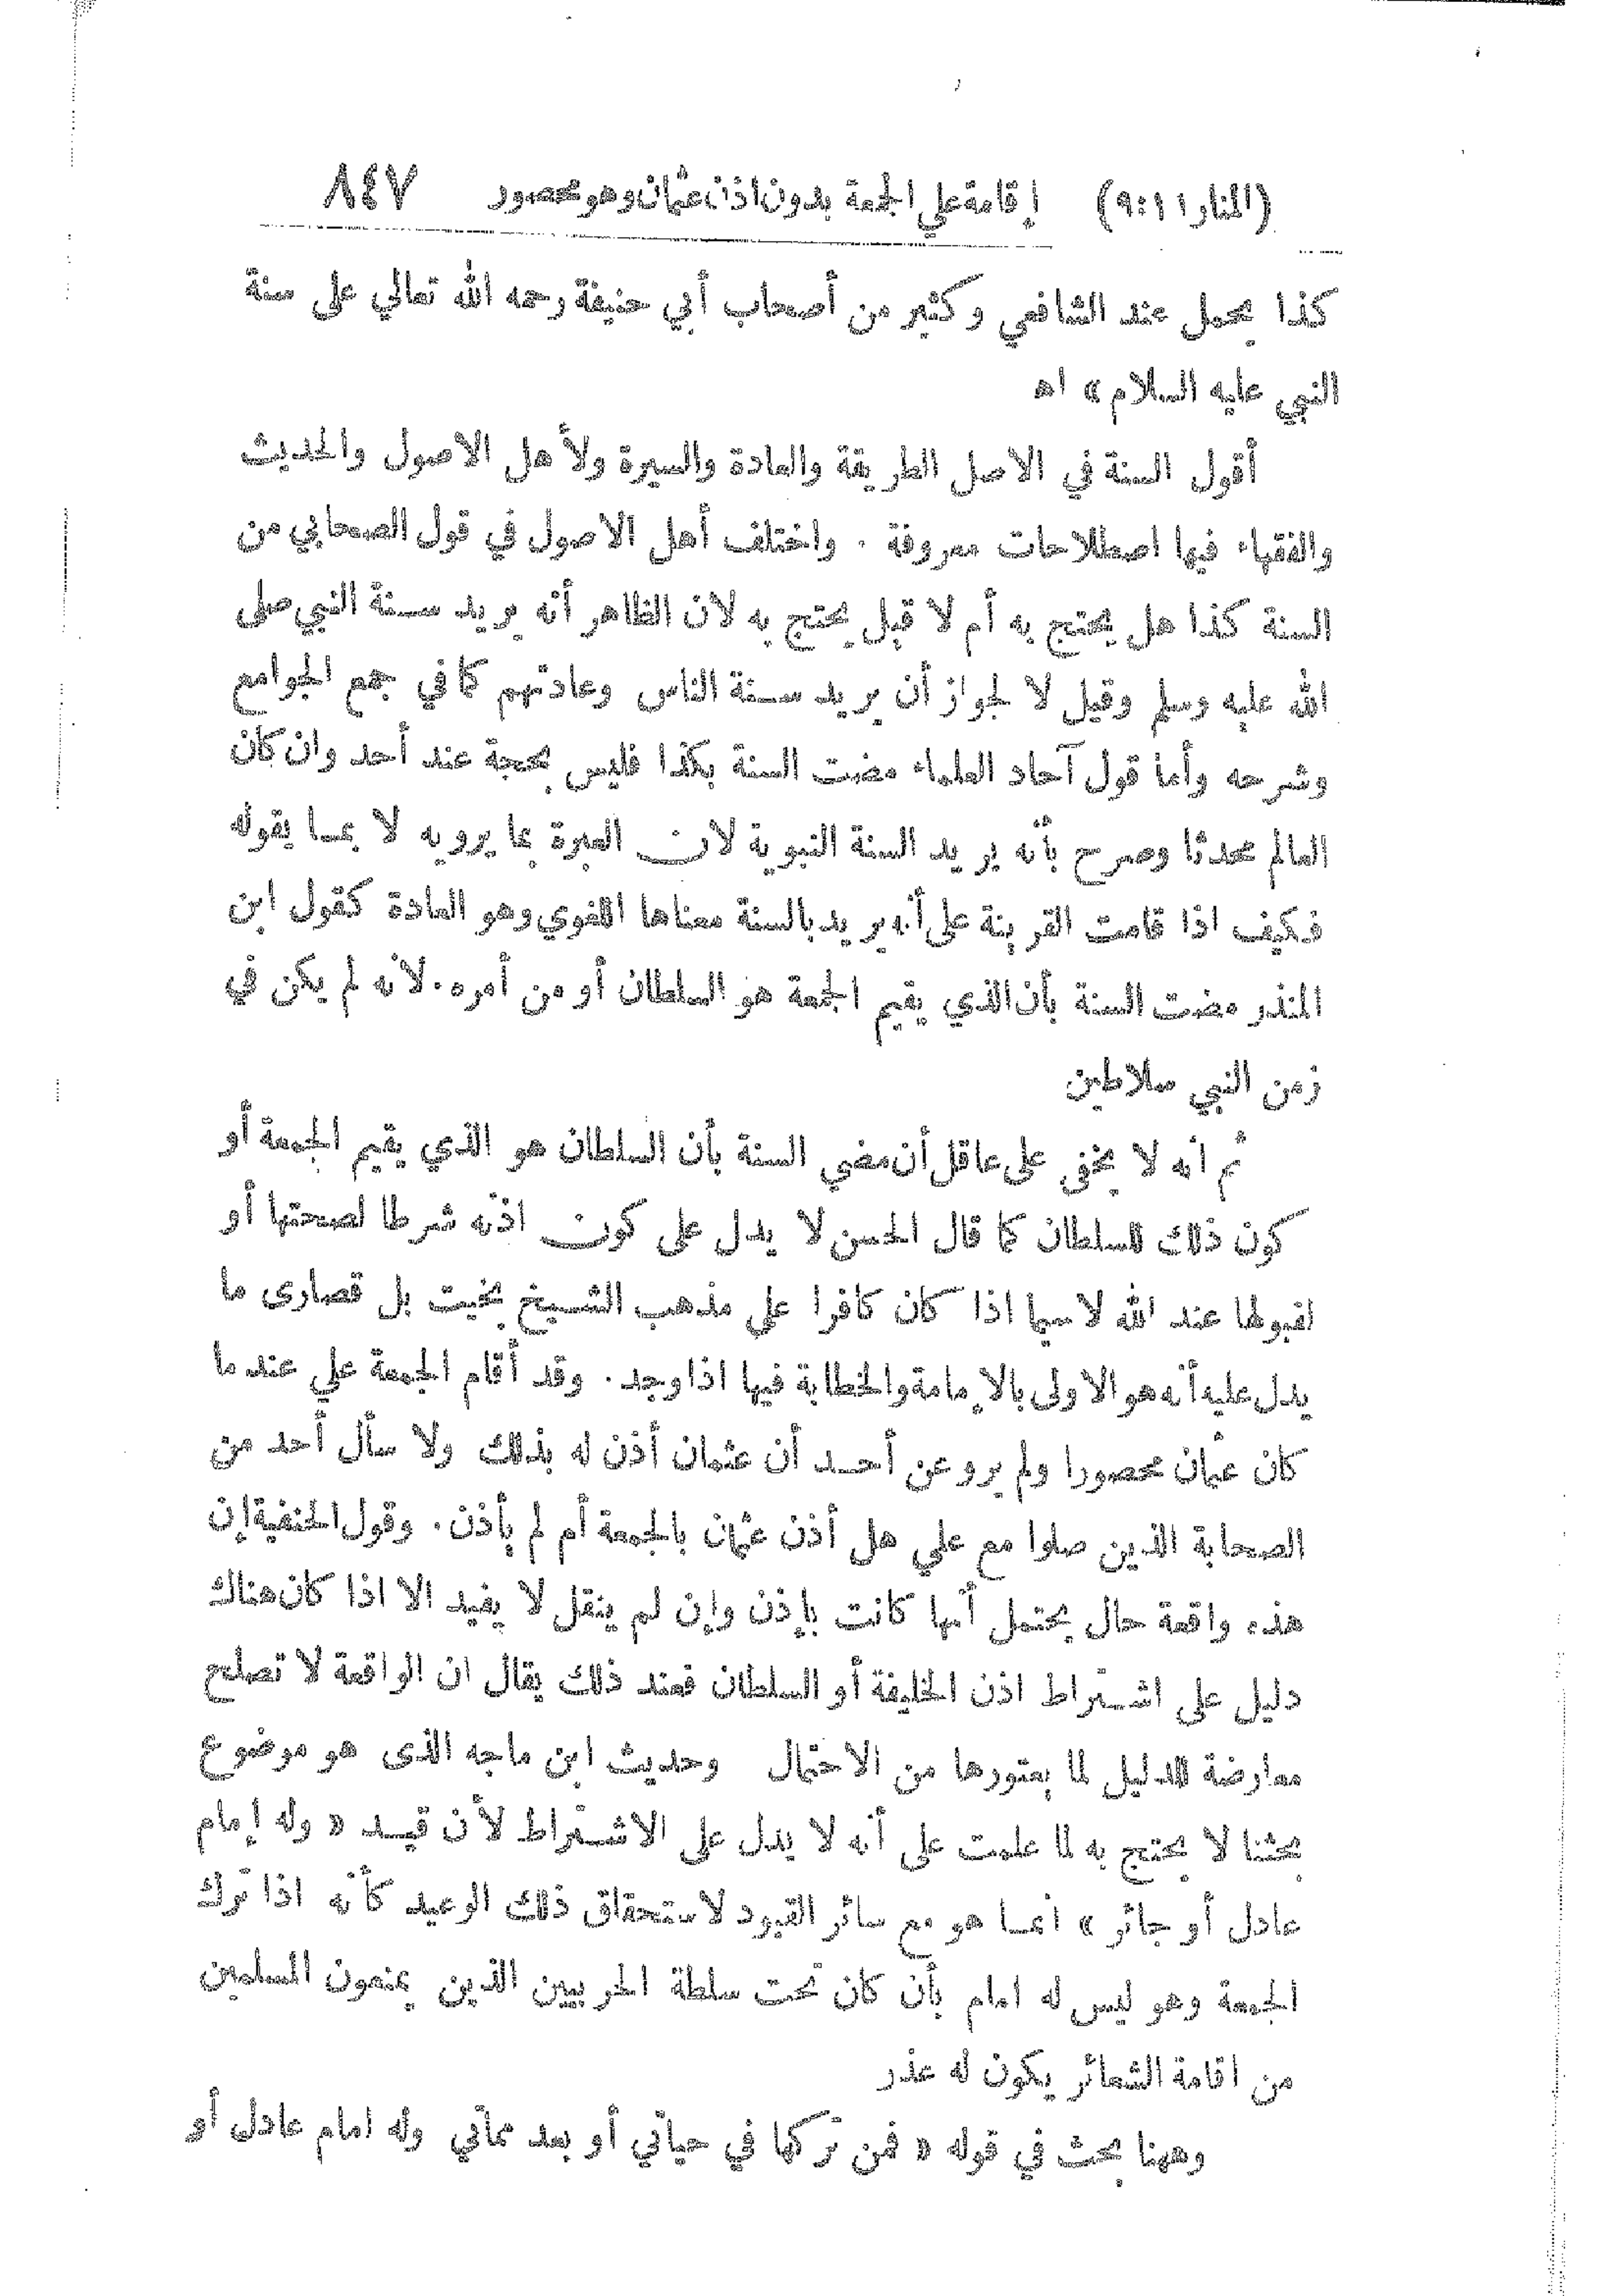 (المنار ١١:٩) إقامة علي الجمعة بدون اذن عثمان وهو محصور ٨٤٧
كذا يحمل عند الشافعي وكثير من أصحاب أبي حنيفة رحمه الله تعالي على سنة
النبي عليه السلام» اه
أقول السنة في الاصل الطريقة والعادة والسيرة ولأهل الاصول والحديث
والفقهاء فيها اصطلاحات معروفة . واختلف أهل الاصول في قول الصحابي من
السنة كذا هل يحتج به أم لا قيل يحتج به لان الظاهر أنه يريد سنة النبي صلى
الله عليه وسلم وقيل لا لجواز أن يريد سنة الناس وعادتهم كما في جمع الجوامع
وشرحه وأما قول آحاد العلماء مضت السنة بكذا فليس بحجة عند أحد وان كان
العالم محدثا وصرح بأنه يريد السنة النبوية لان العبرة بما يرويه لا بما يقوله
فكيف اذا قامت القرينة على أنه يريد بالسنة معناها اللغوي وهو العادة كقول ابن
المنذر مضت السنة بأن الذي يقيم الجمعة هو السلطان أو من أمره. لانه لم يكن في
زمن النبي سلاطين
ثم انه لا يخفى على عاقل أن مضي السنة بأن السلطان هو الذي يقيم الجمعة أو
كون ذلك للسلطان كما قال الحسن لا يدل على كون اذنه شرطا لصحتها أو
لقبولها عند الله لا سيما اذا كان كافرا على مذهب الشيخ بخيت بل قصارى ما
يدل عليه أنه هو الاولى بالإمامة والخطابة فيها اذا وجد. وقد أقام الجمعة علي عند ما
كان عثمان محصورا ولم يرو عن أحد أن عثمان أذن له بذلك ولا سأل أحد من
الصحابة الذين صلوا مع علي هل أذن عثمان بالجمعة أم لم يأذن. وقول الحنفية إن
هذه واقعة حال يحتمل أنها كانت بإذن وإن لم ينقل لا يفيد الا اذا كان هناك
دليل على اشتراط اذن الخليفة أو السلطان فعند ذلك يقال ان الواقعة لا تصلح
معارضة للدليل لما يعتورها من الاحتمال وحديث ابن ماجه الذى هو موضوع
بحثنا لا يحتج به لما علمت على أنه لا يدل على الاشتراط لأن قيد « وله إمام
عادل أو جائر » انما هو مع سائر القيود لاستحقاق ذلك الوعيد كأنه اذا ترك
الجمعة وهو ليس له امام بأن كان تحت سلطة الحربيين الذين يمنعون المسلمين
من اقامة الشعائر يكون له عذر
وههنا بحث في قوله « فمن تركها في حياتي أو بعد مماتي وله امام عادل أو